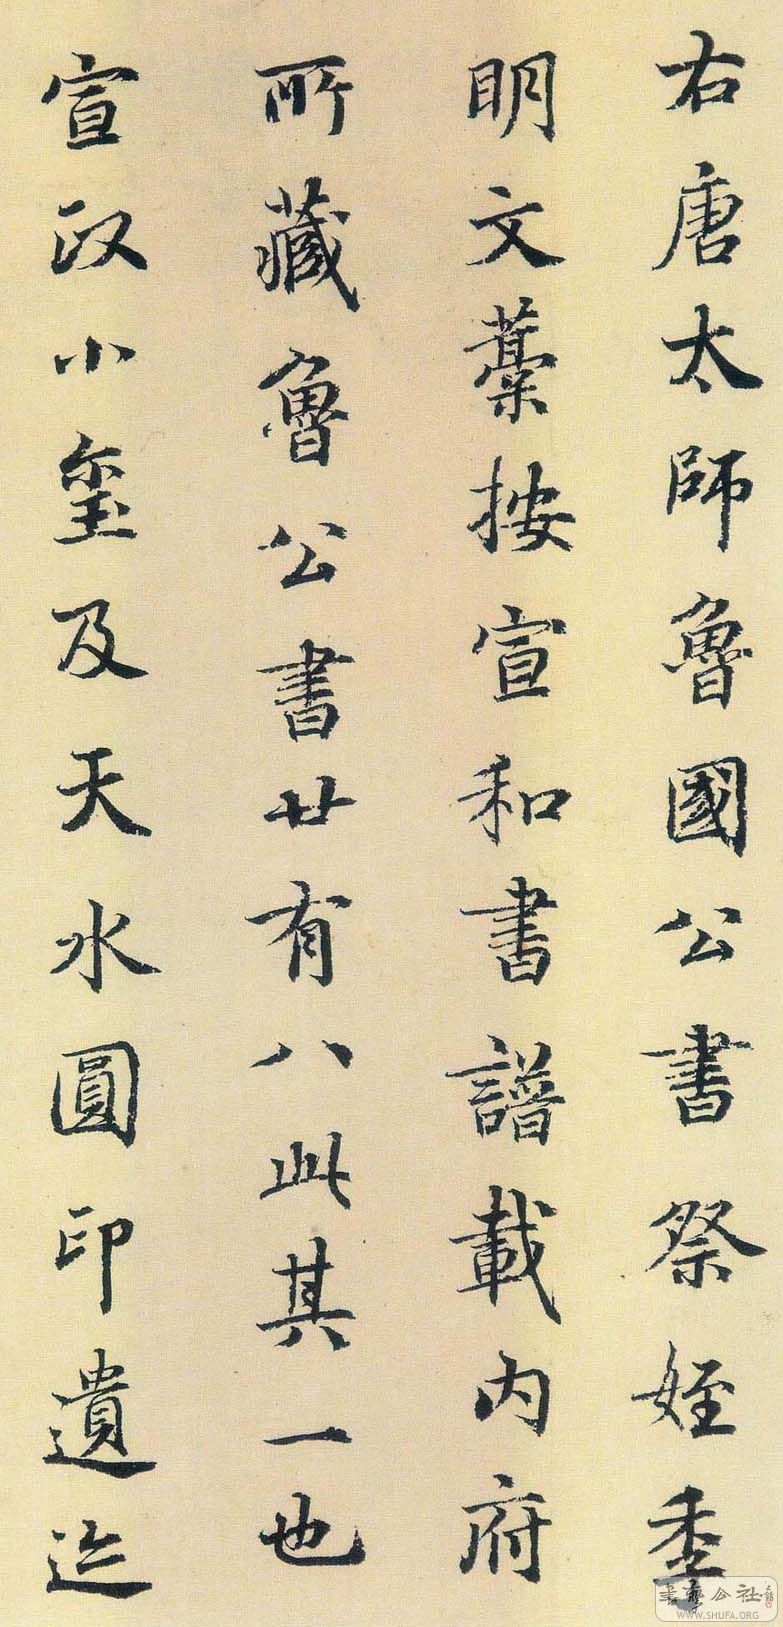 右唐太師魯國公書祭姪季
明文藁按宣和書譜載內府
所藏魯公書廿有八此其一也
宣政小璽及天水圓印遺迹
書藝公社
WWW.SHUFA.ORG